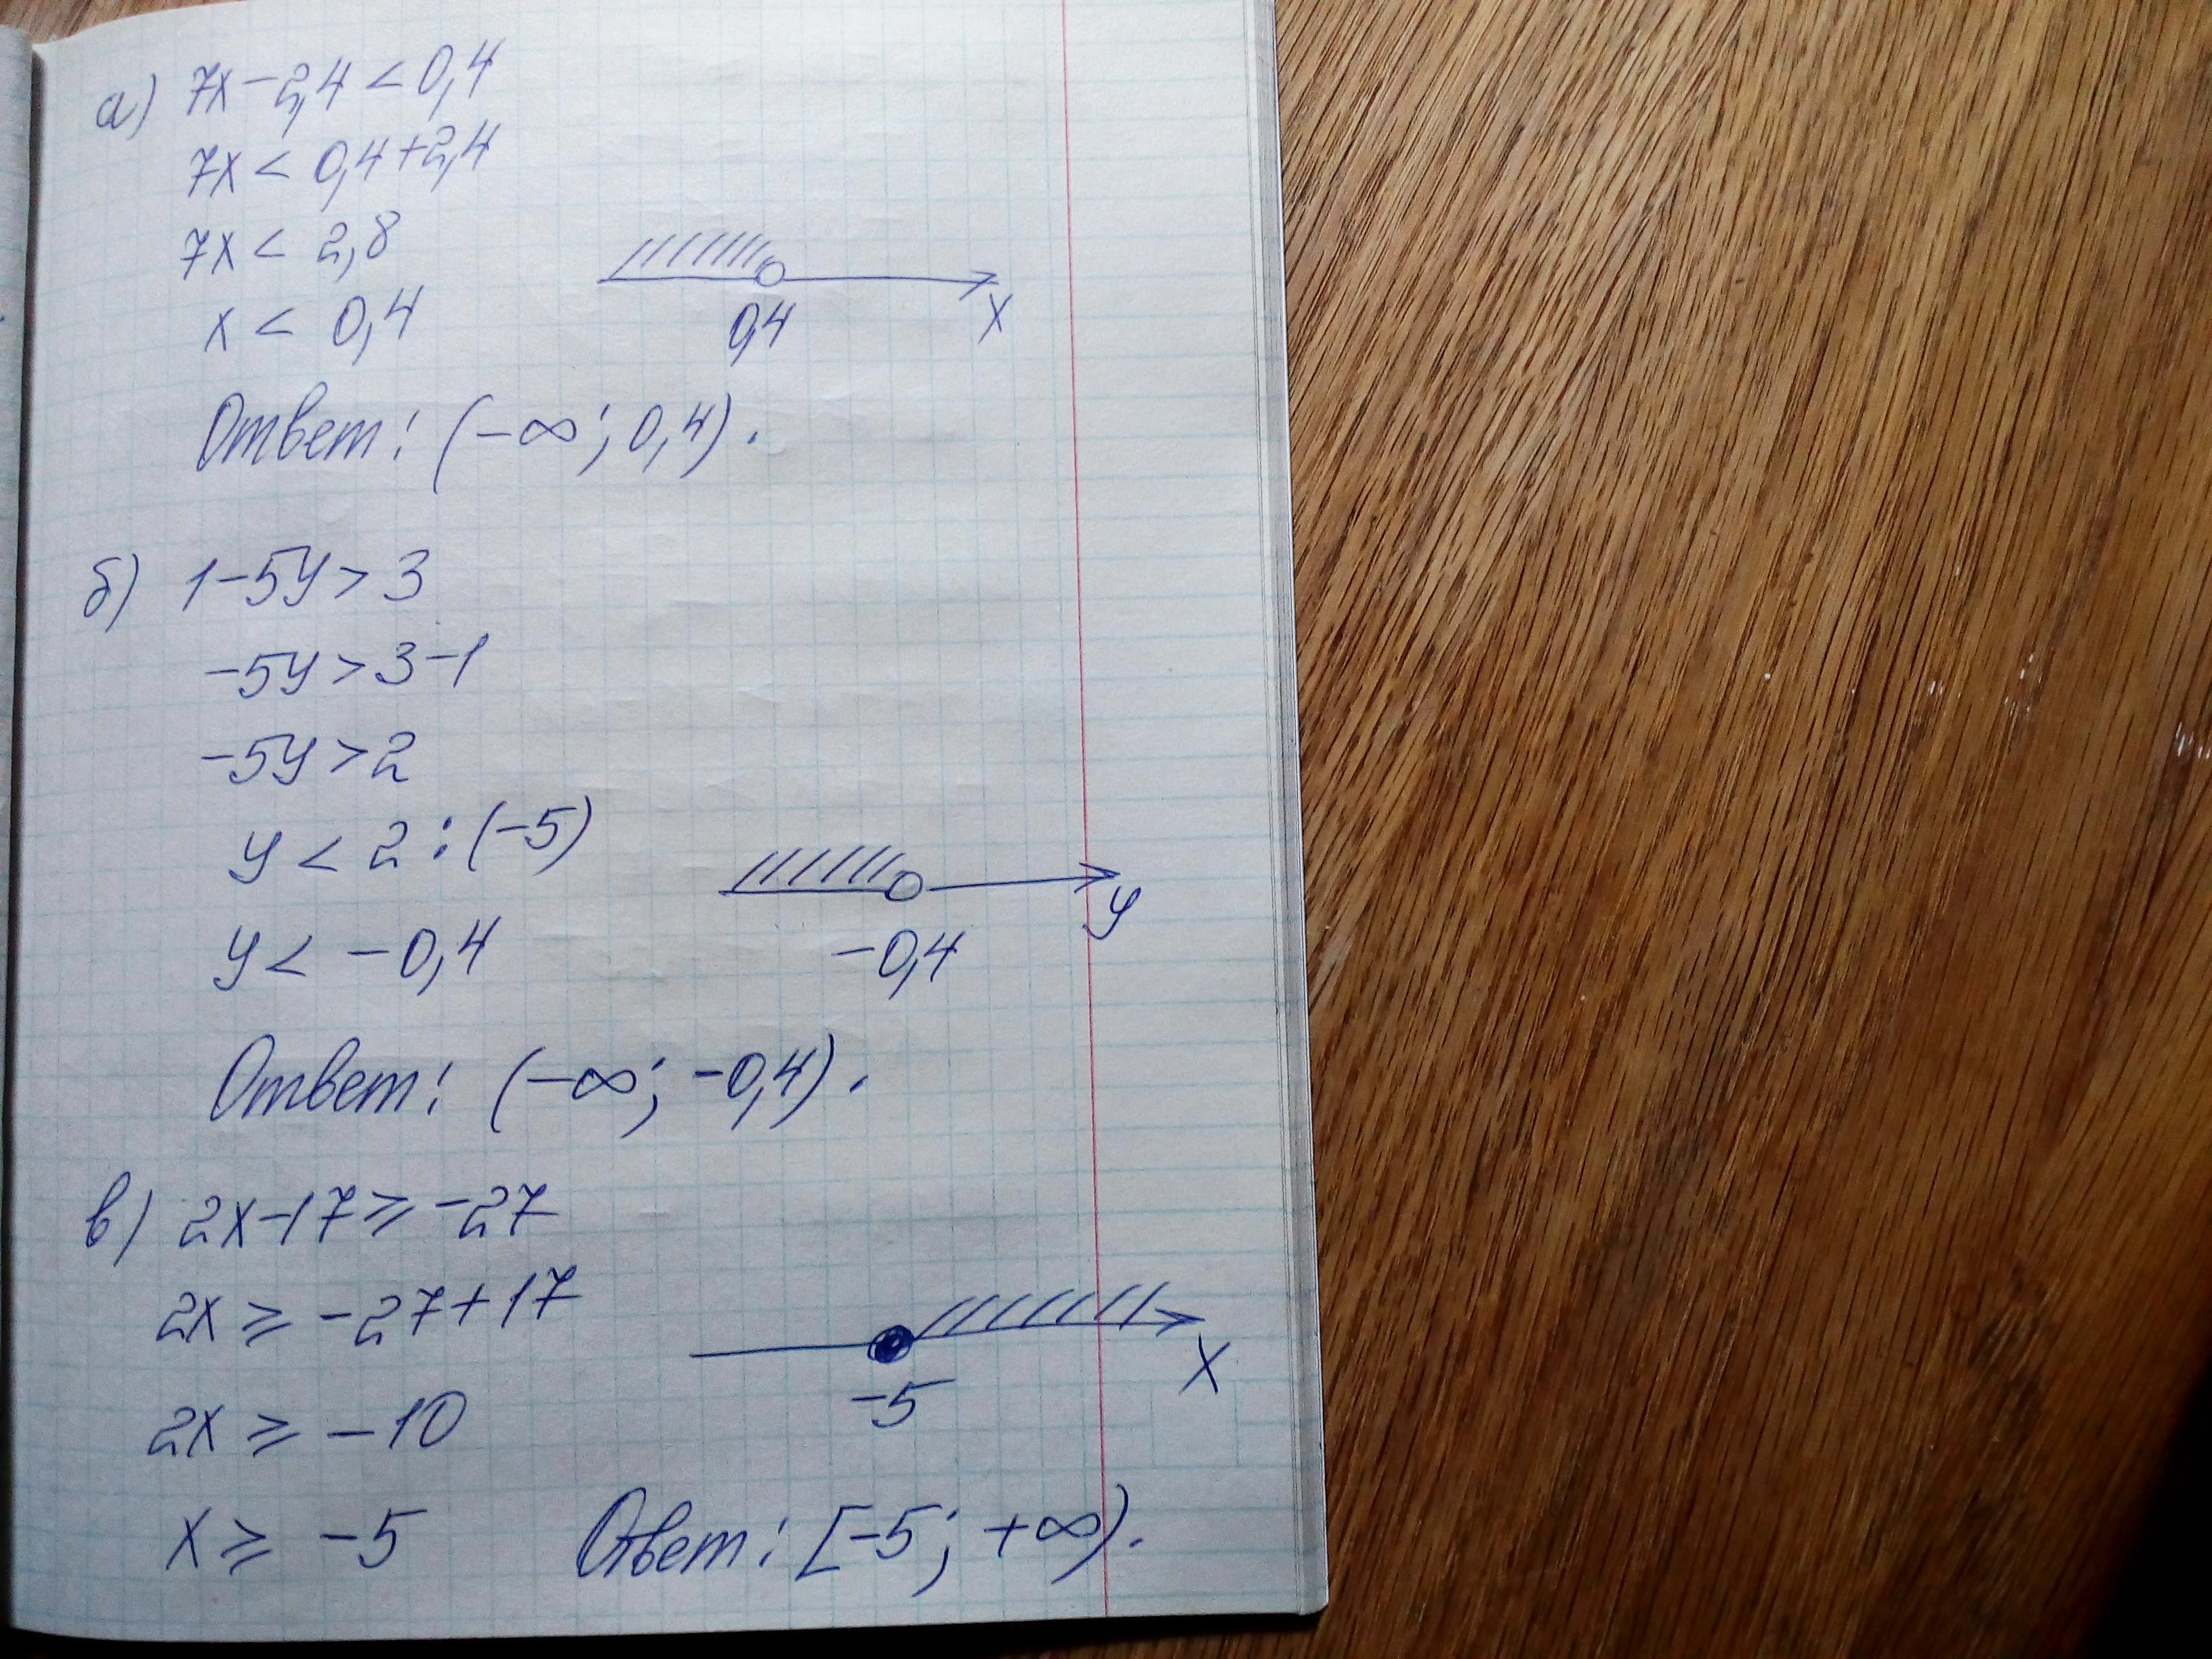 а) 7x-2,4<0,4
7x< 0,4+2,4
7x< 2,8
x< 0,4
0,4
x
Ответ: (-∞; 0,4).
б) 1-5y>3
-5y>3-1
-5y>2
y<2:(-5)
y< -0,4
-0,4
y
Ответ: (-∞; -0,4).
в) 2x-17⩾-27
2x⩾ -27+17
2x⩾ -10
-5
x
x⩾ -5
Ответ: [-5; +∞).